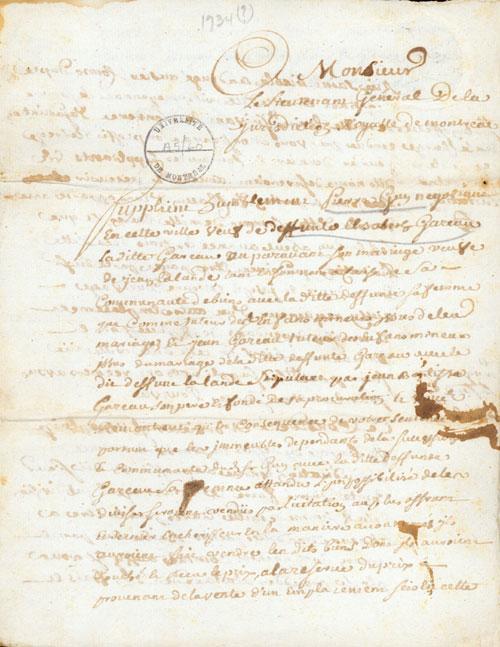 1934 (?)
Monsieur
Le Lieutenant General De la
Jurisdiction Royalle de montreal
UNIVERSITÉ
A5/
DE MONTRÉAL
Supplient humblement Pierre Guy negotiant
En cette ville veuf de deffunte Elisabeth Gareau
La ditte Gareau au paravant son mariage veuve
de jean La Lande
Communauté de biens avec la ditte deffunte sa femme
que Comme tuteur des Enfans mineurs
mariage & jean Gareau tuteur des Enfans mineurs
du mariage de la ditte deffunte Gareau avec le
dit deffunt la Lande Stipulant par jean Baptiste
Gareau son pere fondé de sa procuration
qu'En Consequence de votre Sentence
portant que les immeubles dependants de la Succession
& Communauté du dit Guy avec la ditte deffunte
Gareau attendu L'impossibilité de les
diviser seroient vendus par licitation au plus offrant
et dernier Encherisseur la manière accoutumée
auroient fait vendre les dits biens dont ils auroient
touché le prix, a la reserve du prix
provenant de la vente d'un Emplacement scis En cette